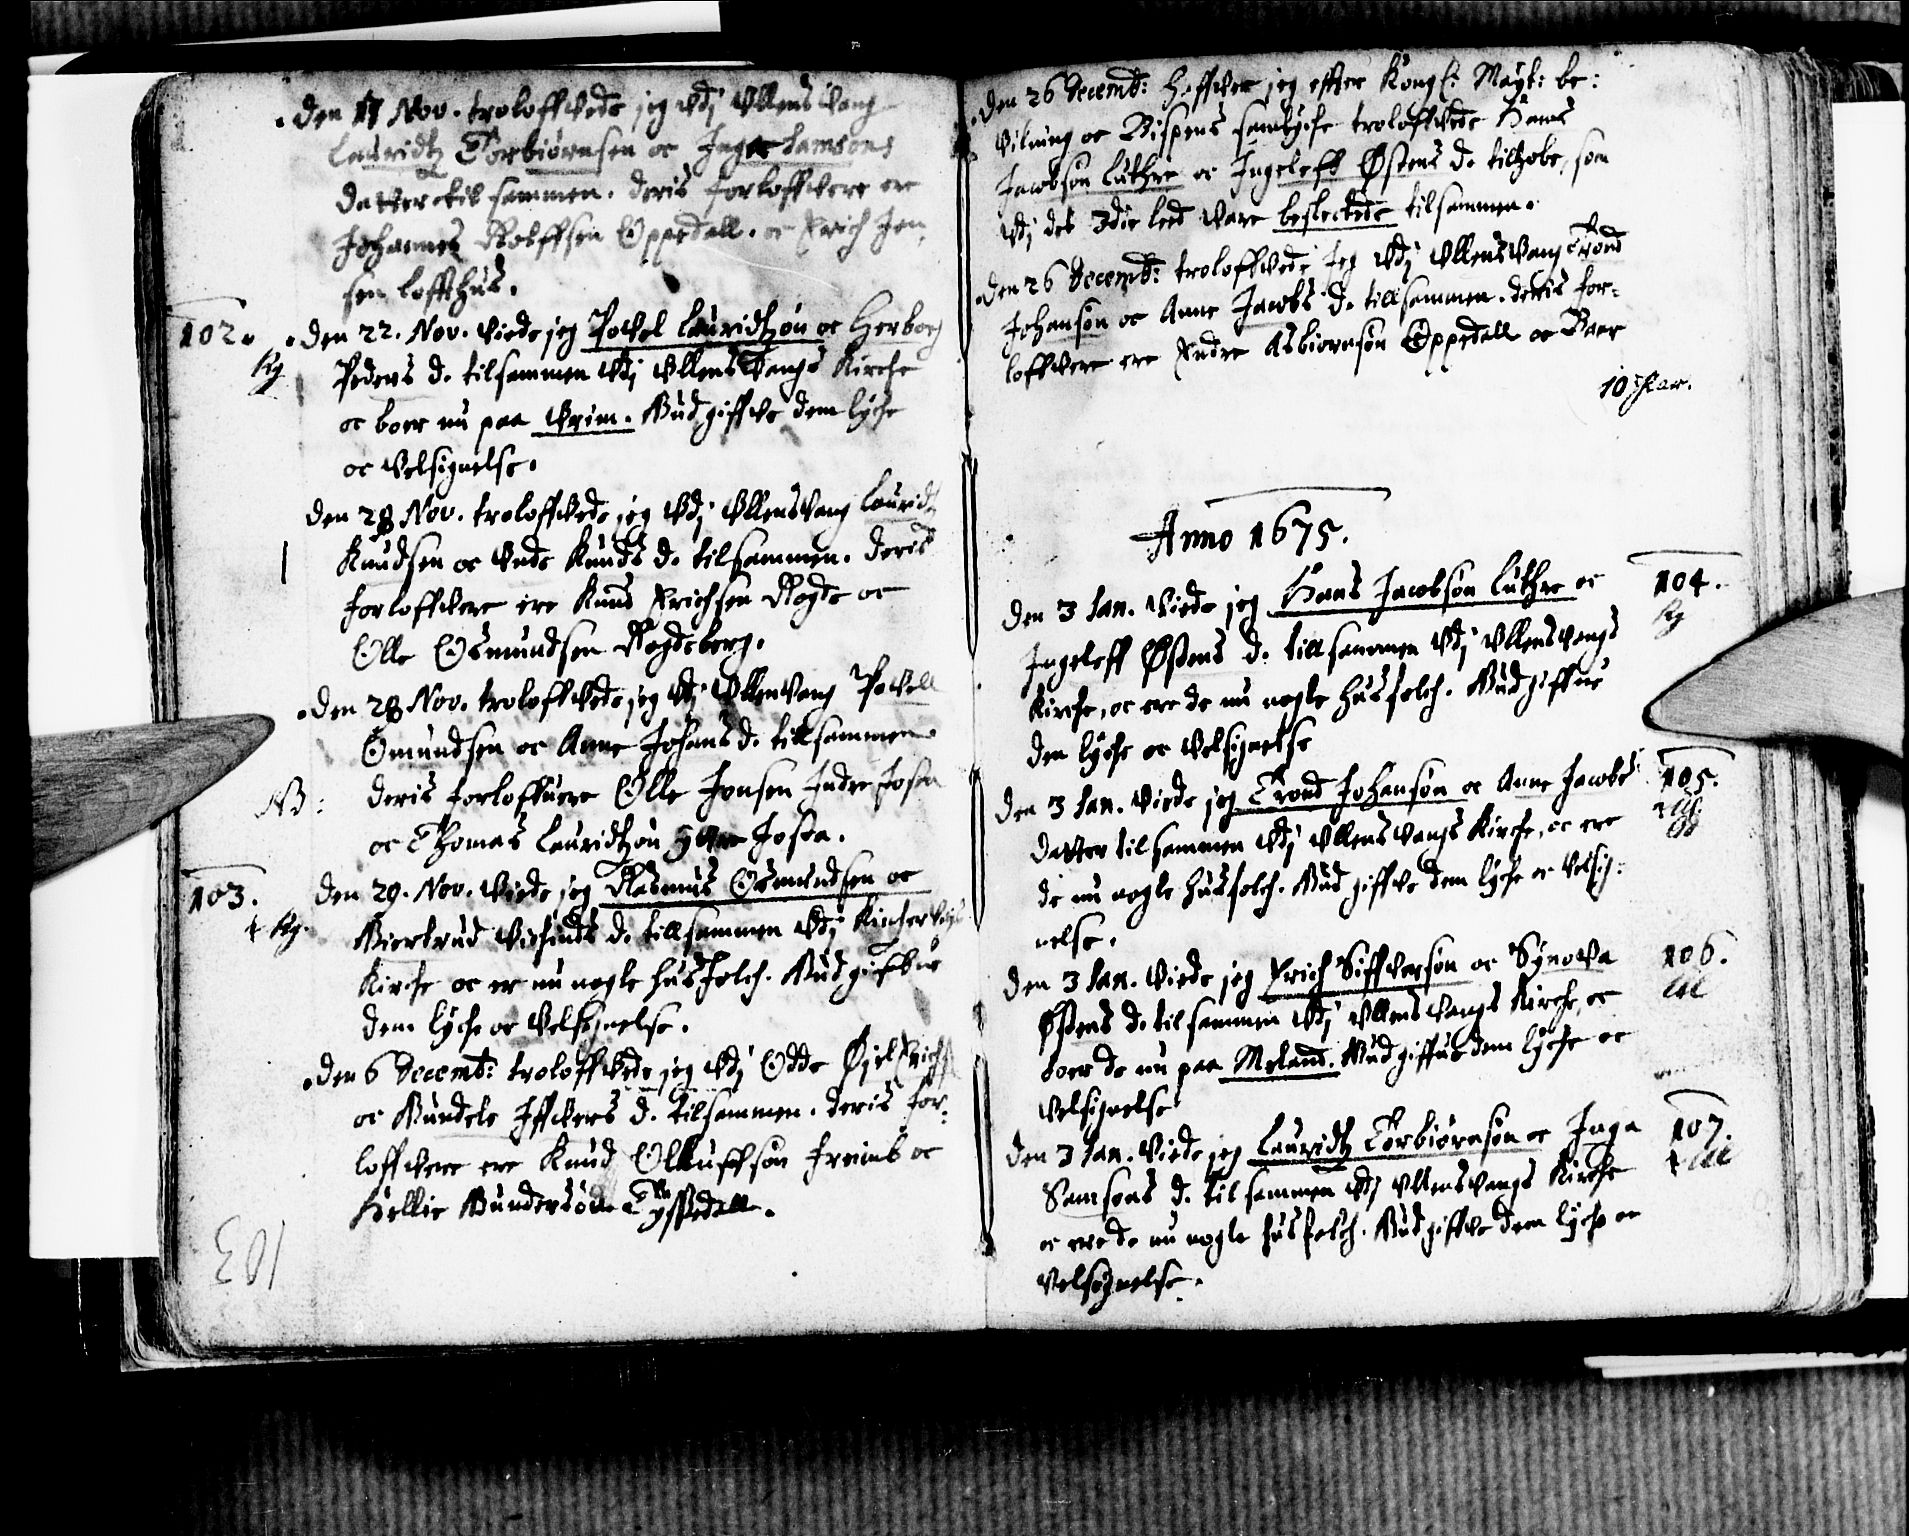 Den 17 Nov. troloffvede jeg vdj Ullensvang
Lauridtz Torbiørnsen oc Inga Samsons
datter til sammen. deris forloffvere ere
Johannes Rolffsen Oppedall. oc Erich Jon-
sen Loffthus.
102. Den 22. Nov. viede jeg Povel Lauridtzøn oc Herborg
Peders d. tilsammen vdj Ullensvangs Kirche
oc boer nu paa Qvim. Gud giffve dem lyche
oc velsignelse.
Den 28 Nov. troloffvede jeg vdj Ullensvang Lauridtz
Knudsen oc Knuds d. tilsammen. deris
forloffvere ere Knud Erichsen Rogde oc
Olle Osmundsen Rogdeberg.
Den 28 Nov. troloffvede jeg vdj Ullensvang Povell
Omundsen oc Anne Johans d. tillsammen.
NB: deris forloffuere Olle Jonsen Indre Josen
oc Thomas Lauridtzøn ytre Josen.
103. Den 29. Nov. viede jeg Rasmus Osmundsen oc
Giertrud d. tillsammen vdj
Kirche oc er nu nogle husfolch. Gud giffue
dem lyche oc velsignelse.
Den 6 Decemb: troloffvede jeg vdj Odde
oc Gundele Iffvers d. tilsammen. deris for-
loffvere ere Knud Olluffsøn Freimb oc
Hellie Gundersøn Tyssedall.
103
Den 26 Decemb: haffver jeg effter Kongl: Mayt: be:
vilning oc Bispens samtyche troloffvede Hans
Jacobsøn Luthre oc Ingeleff Østens d. tilhobe, som
vdj det 3die leed vare beslectede tilsammen.
Den 26 Decemb: troloffvede jeg vdj Ullensvang Trond
Johansøn oc Anne Jacobs d. tillsammen. deris for-
loffvere ere Endre Asbiørnsøn Oppedall oc
10 Par.
Anno 1675.
Den 3 Jan. viede jeg Hans Jacobsøn Luthre oc 104.
Ingeleff Østens d. tillsammen vdj Ullensvangs
Kirche, oc ere de nu nogle husfolch. Gud giffue
dem lyche oc velsignelse
Den 3 Jan. viede jeg Trond Johansøn oc Anne Jacobs 105.
datter tilsammen vdj Ullensvangs Kirche, oc ere
de nu nogle husfolch. Gud giffve dem lyche oc velsig-
nelse.
Den 3 Jan. viede jeg Erich Siffversøn oc Synova 106.
Østens d. tilsammen vdj Ullensvangs Kirche, oc
boer de nu paa Meland. Gud giffue dem lyche oc
velsignelse
Den 3 Jan. viede jeg Lauridtz Torbiørnsøn oc Inga 107.
Samsons d. til sammen vdj Ullensvangs Kirche
oc ere de nu nogle husfolch. Gud giffve dem lyche oc
velsignelse.